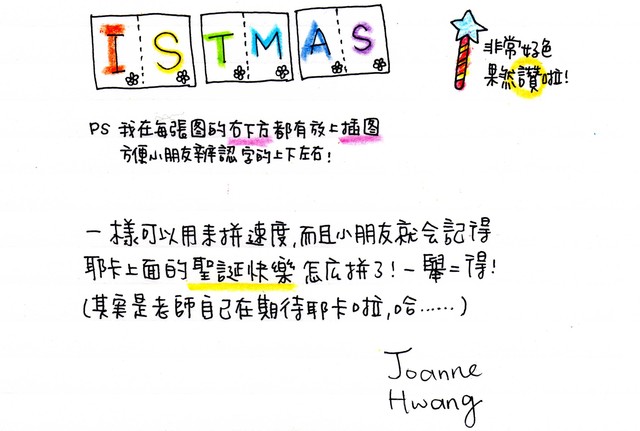 ISTMAS
非常好色
果然讚啦!
PS 我在每張图的右下方都有放上插图
方便小朋友辨認字的上下左右!
一樣可以用來拼速度,而且小朋友就会記得
耶卡上面的聖誕快樂怎広拼了!一舉二得!
(其實是老師自己在期待耶卡啦,哈……)
Joanne
Hwang